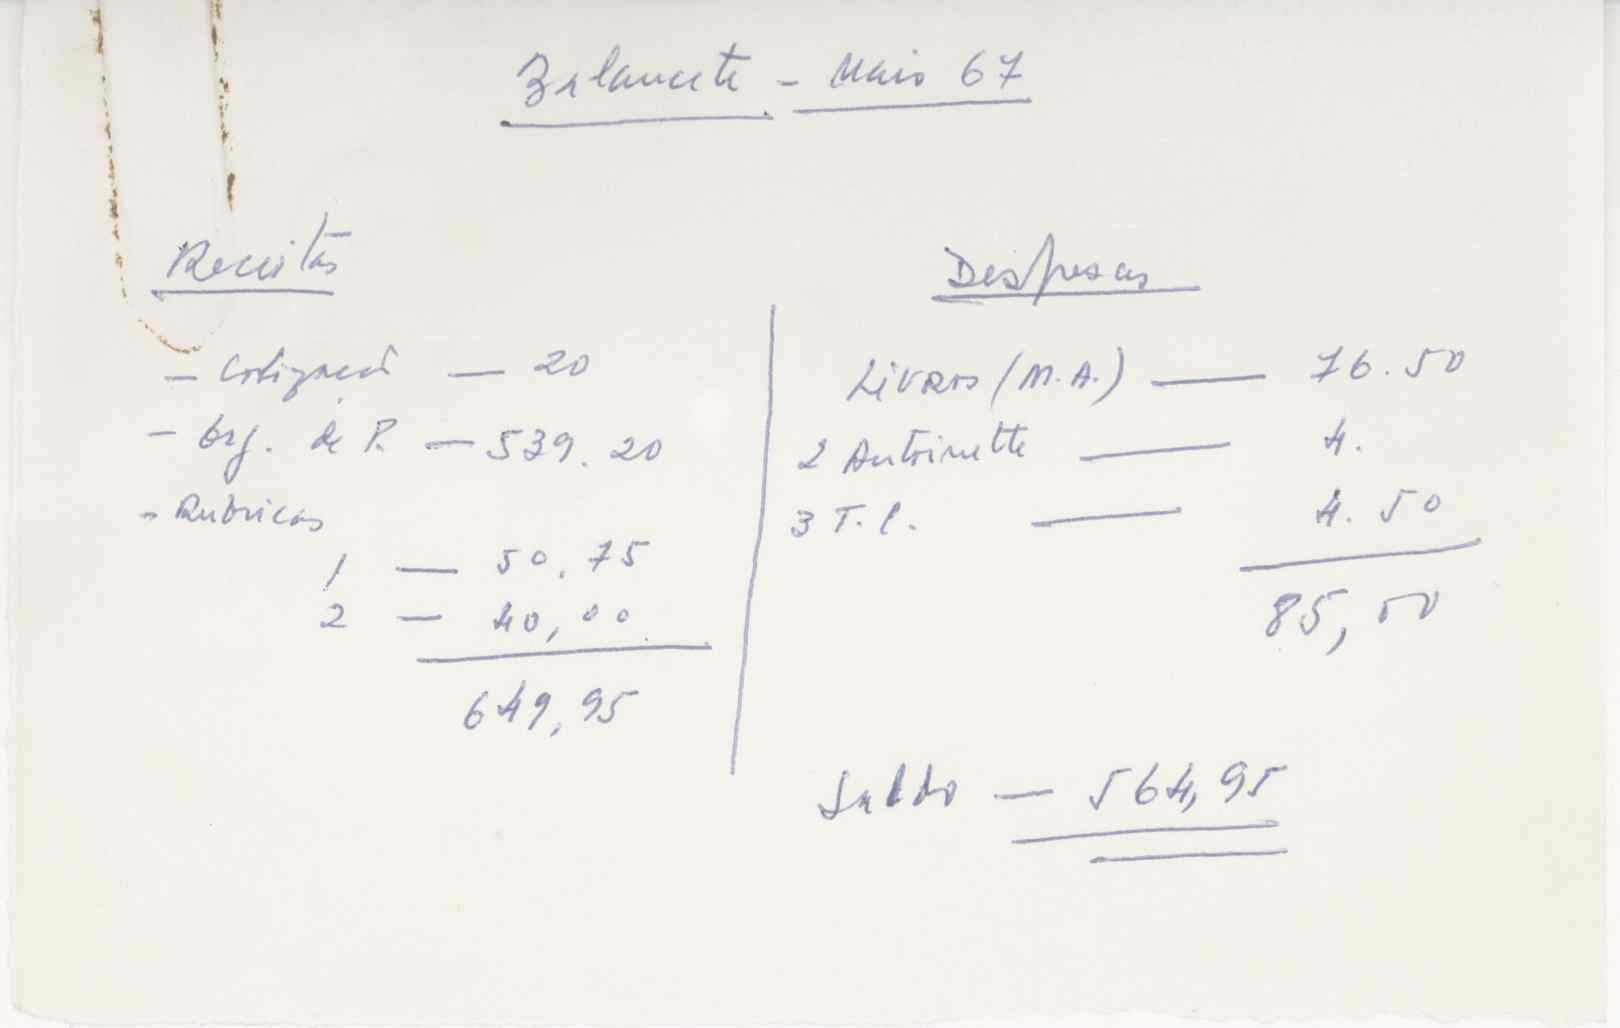 Balancete - Maio 67
Receitas
- Cotização — 20
- Org. de P. — 539.20
- Rubricas
1 — 50.75
2 — 40,00
649,95
Despesas
Livros (M.A.) — 76.50
2 Antoinette — 4.
3 T.C. — 4.50
85,00
Saldo — 564,95